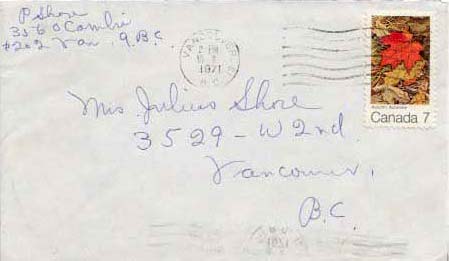 P Shore
3560 Cambie
#202 Van. 9. B.C.
VANCOUVER
2 PM
1971
B.C.
Canada 7
Mrs Julius Shore
3529 - W 2nd
Vancouver,
B.C.
1971